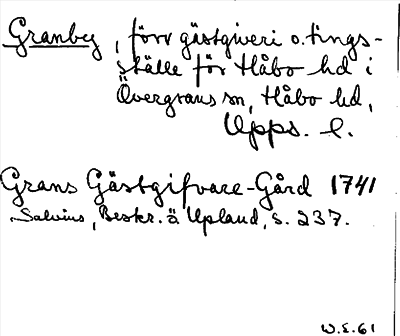 Granby, förv gästgiveri o. tings-
ställe för Håbo hd i
Övergrans sn, Håbo hd,
Upps. l.
Grans Gästgifvare-Gård 1741
Salvius, Beskr. ö Upland, s. 237.
W.E.61